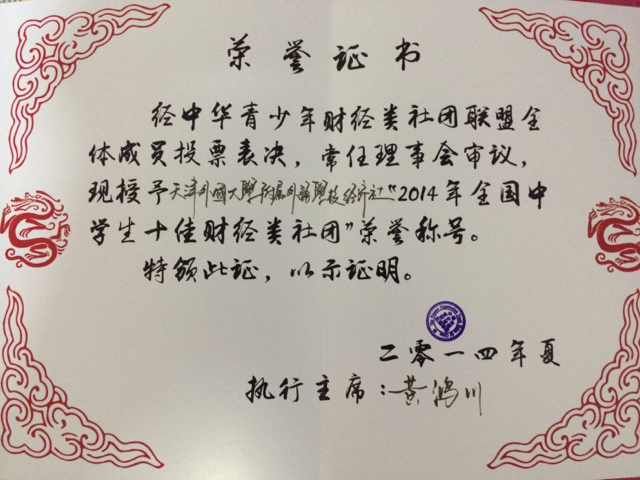 荣誉证书
经中华青少年财经类社团联盟全
体成员投票表决，常任理事会审议，
现授予天津外國大學附属外語學校经济社“2014年全国中
学生十佳财经类社团”荣誉称号。
特颁此证，以示证明。
二零一四年夏
执行主席：黄鸿川